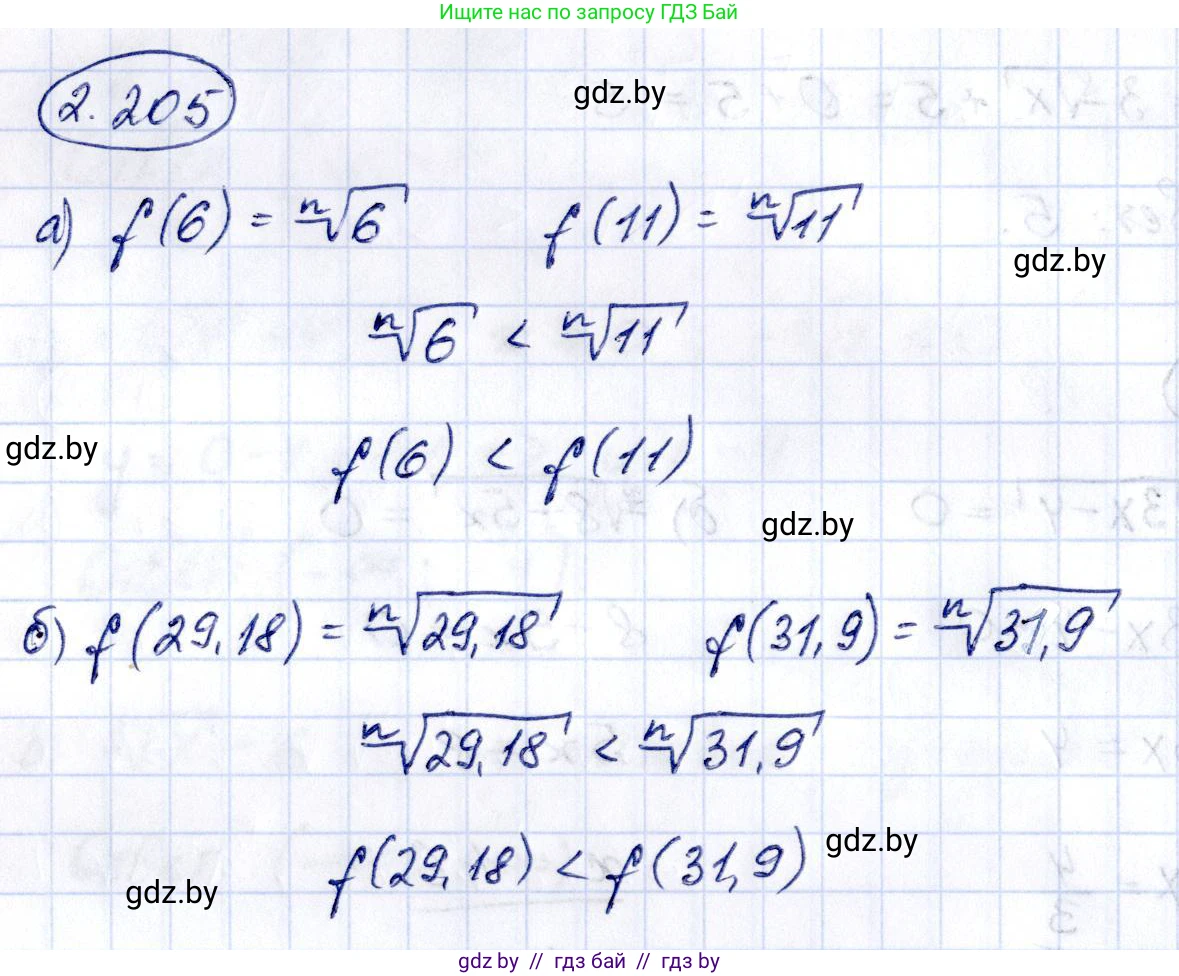 Ищите нас по запросу ГДЗ Бай
2.205
gdz.by
а) f(6) = ⁿ√6 f(11) = ⁿ√11
gdz.by
ⁿ√6 < ⁿ√11
gdz.by
f(6) < f(11)
gdz.by
б) f(29,18) = ⁿ√29,18 f(31,9) = ⁿ√31,9
ⁿ√29,18 < ⁿ√31,9
gdz.by
f(29,18) < f(31,9)
gdz.by
gdz.by // гдз бай // gdz.by